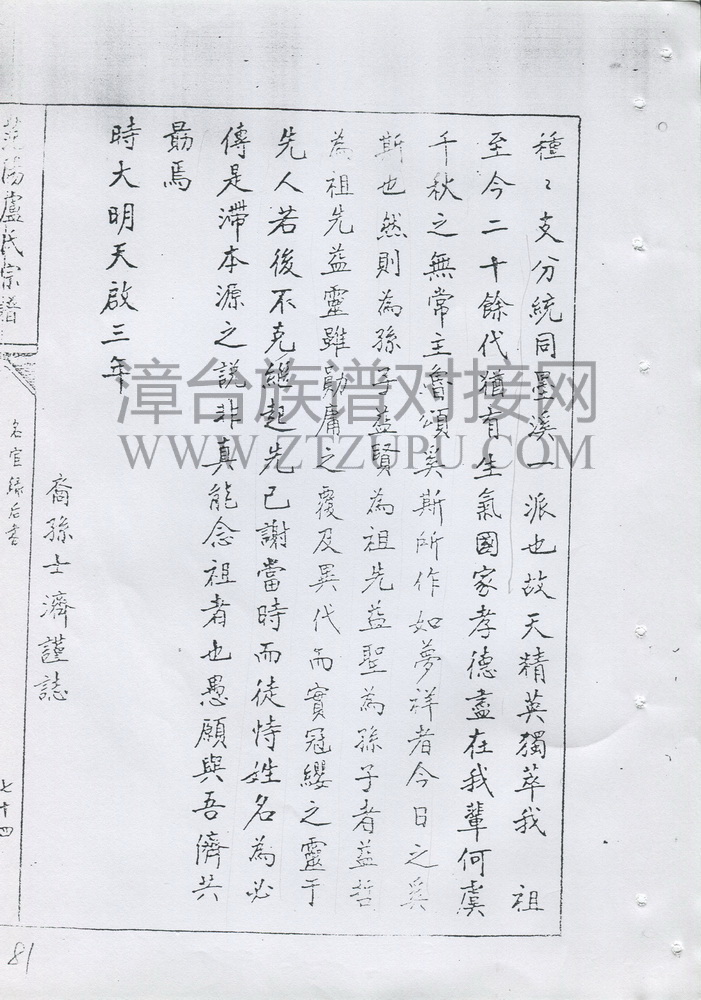 種〻支分統同墨溪一派也故天精英獨萃我 祖
至今二十餘代猶有生氣國家孝德盡在我輩何虞
千秋之無常主魯頌奚斯所作如夢祥者今日之奚
斯也然則為孫子益賢為祖先益聖為孫子者益哲
為祖先益靈雖勛庸之覆及異代而實冠纓之靈于
先人若後不克繼起先已謝當時而徒恃姓名為必
傳是滯本源之說非真能念祖者也愚願與吾儕共
勗焉
時大明天啟三年
裔孫士濟謹誌
范陽盧氏宗譜
名宦錄后書
七十四
81
漳台族谱对接网
WWW.ZTZUPU.COM